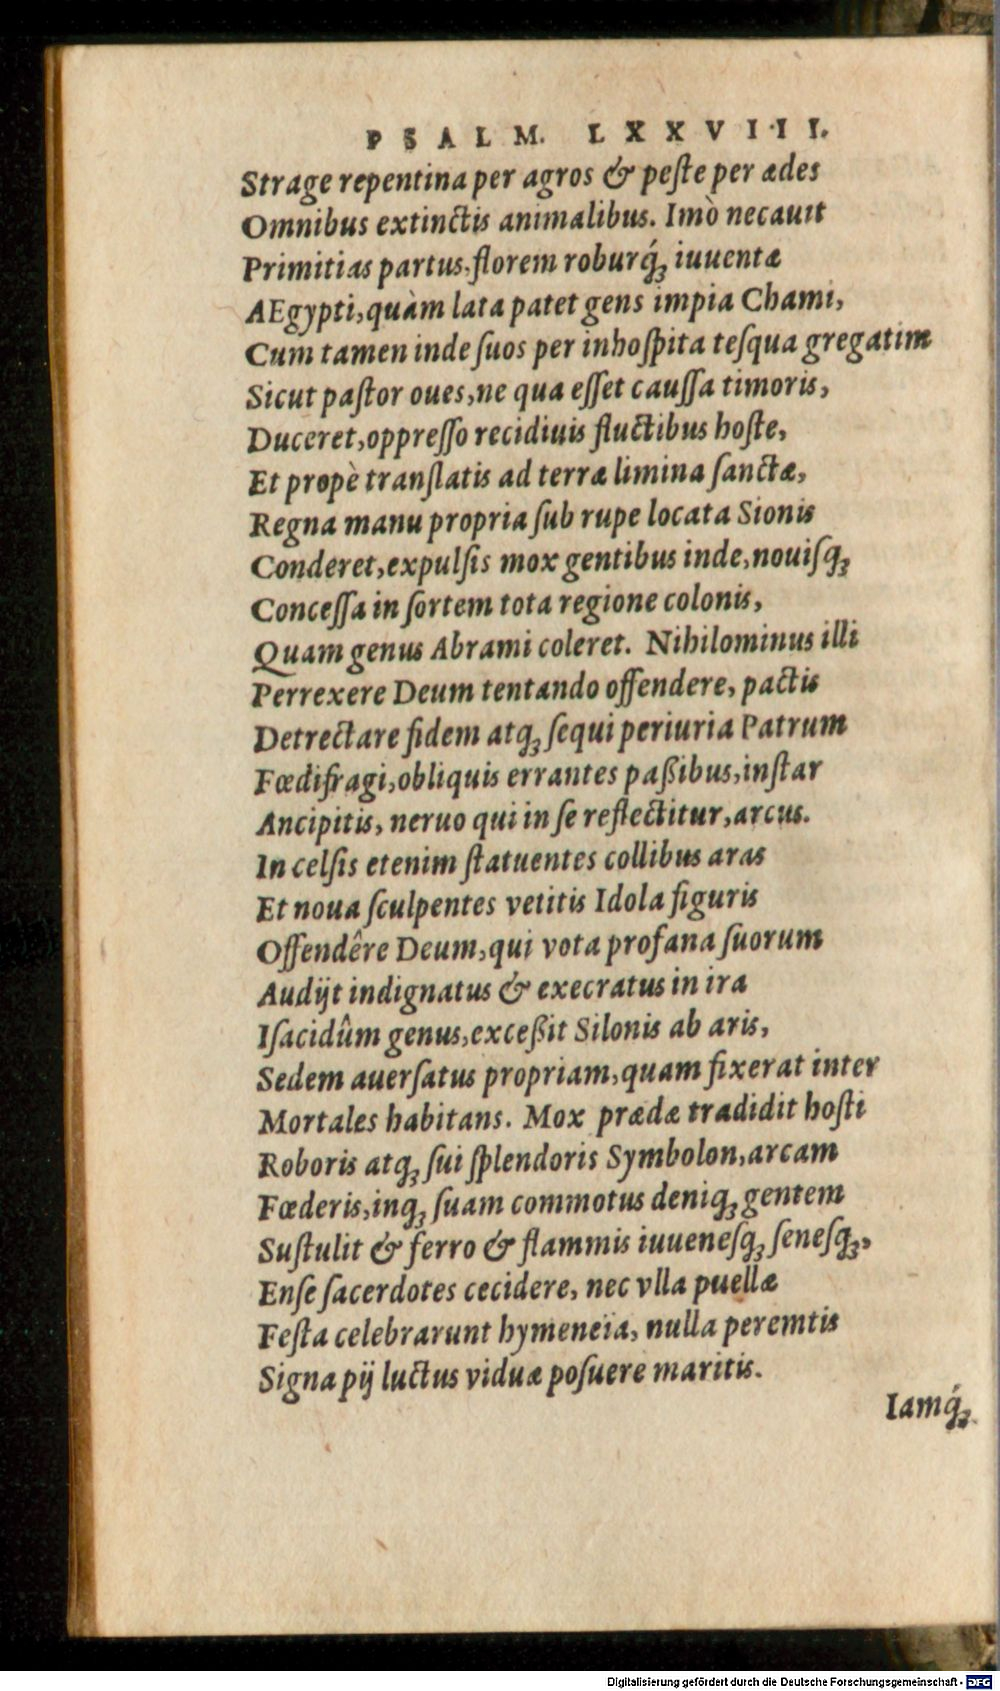 PSALM. LXXVIII.
Strage repentina per agros & peſte per ædes
Omnibus extinctis animalibus. Imò necauit
Primitias partus, florem roburq́ꝫ iuuentæ
AEgypti, quàm lata patet gens impia Chami,
Cum tamen inde ſuos per inhoſpita teſqua gregatim
Sicut paſtor oues, ne qua eſſet cauſſa timoris,
Duceret, oppreſſo recidiuis fluctibus hoſte,
Et propè tranſlatis ad terræ limina ſanctæ,
Regna manu propria ſub rupe locata Sionis
Conderet, expulſis mox gentibus inde, nouiſqꝫ
Conceſſa in ſortem tota regione colonis,
Quam genus Abrami coleret. Nihilominus illi
Perrexere Deum tentando offendere, pactis
Detrectare fidem atqꝫ ſequi periuria Patrum
Fœdifragi, obliquis errantes paßibus, inſtar
Ancipitis, neruo qui in ſe reflectitur, arcus.
In celſis etenim ſtatuentes collibus aras
Et noua ſculpentes vetitis Idola figuris
Offendêre Deum, qui vota profana ſuorum
Audijt indignatus & execratus in ira
Iſacidûm genus, exceßit Silonis ab aris,
Sedem auerſatus propriam, quam fixerat inter
Mortales habitans. Mox prædæ tradidit hoſti
Roboris atqꝫ ſui ſplendoris Symbolon, arcam
Fœderis, inqꝫ ſuam commotus deniqꝫ gentem
Suſtulit & ferro & flammis iuueneſqꝫ ſeneſqꝫ,
Enſe ſacerdotes cecidere, nec vlla puellæ
Feſta celebrarunt hymeneia, nulla peremtis
Signa pij luctus viduæ poſuere maritis.
Iamq́ꝫ
Digitalisierung gefördert durch die Deutsche Forschungsgemeinschaft - DFG